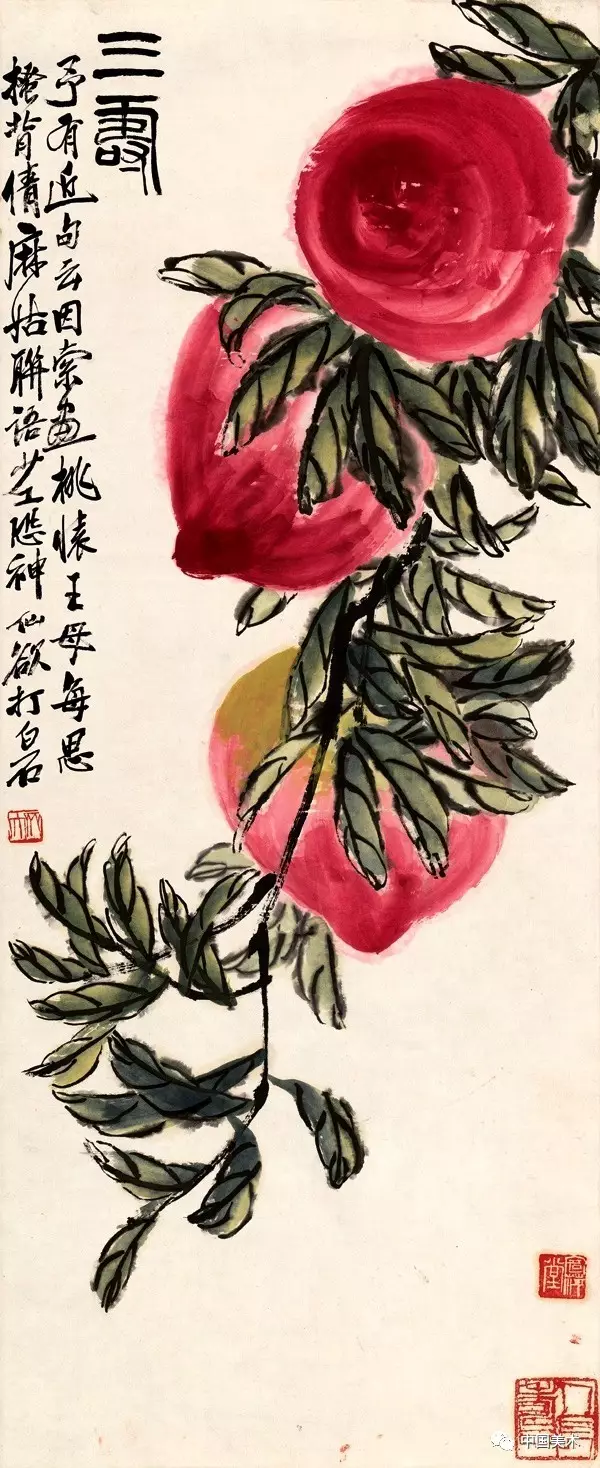 三壽
予有近句云因索畫桃懷王母每思
搔背倩麻姑聯語少工恐神仙欲打白石
中国美术